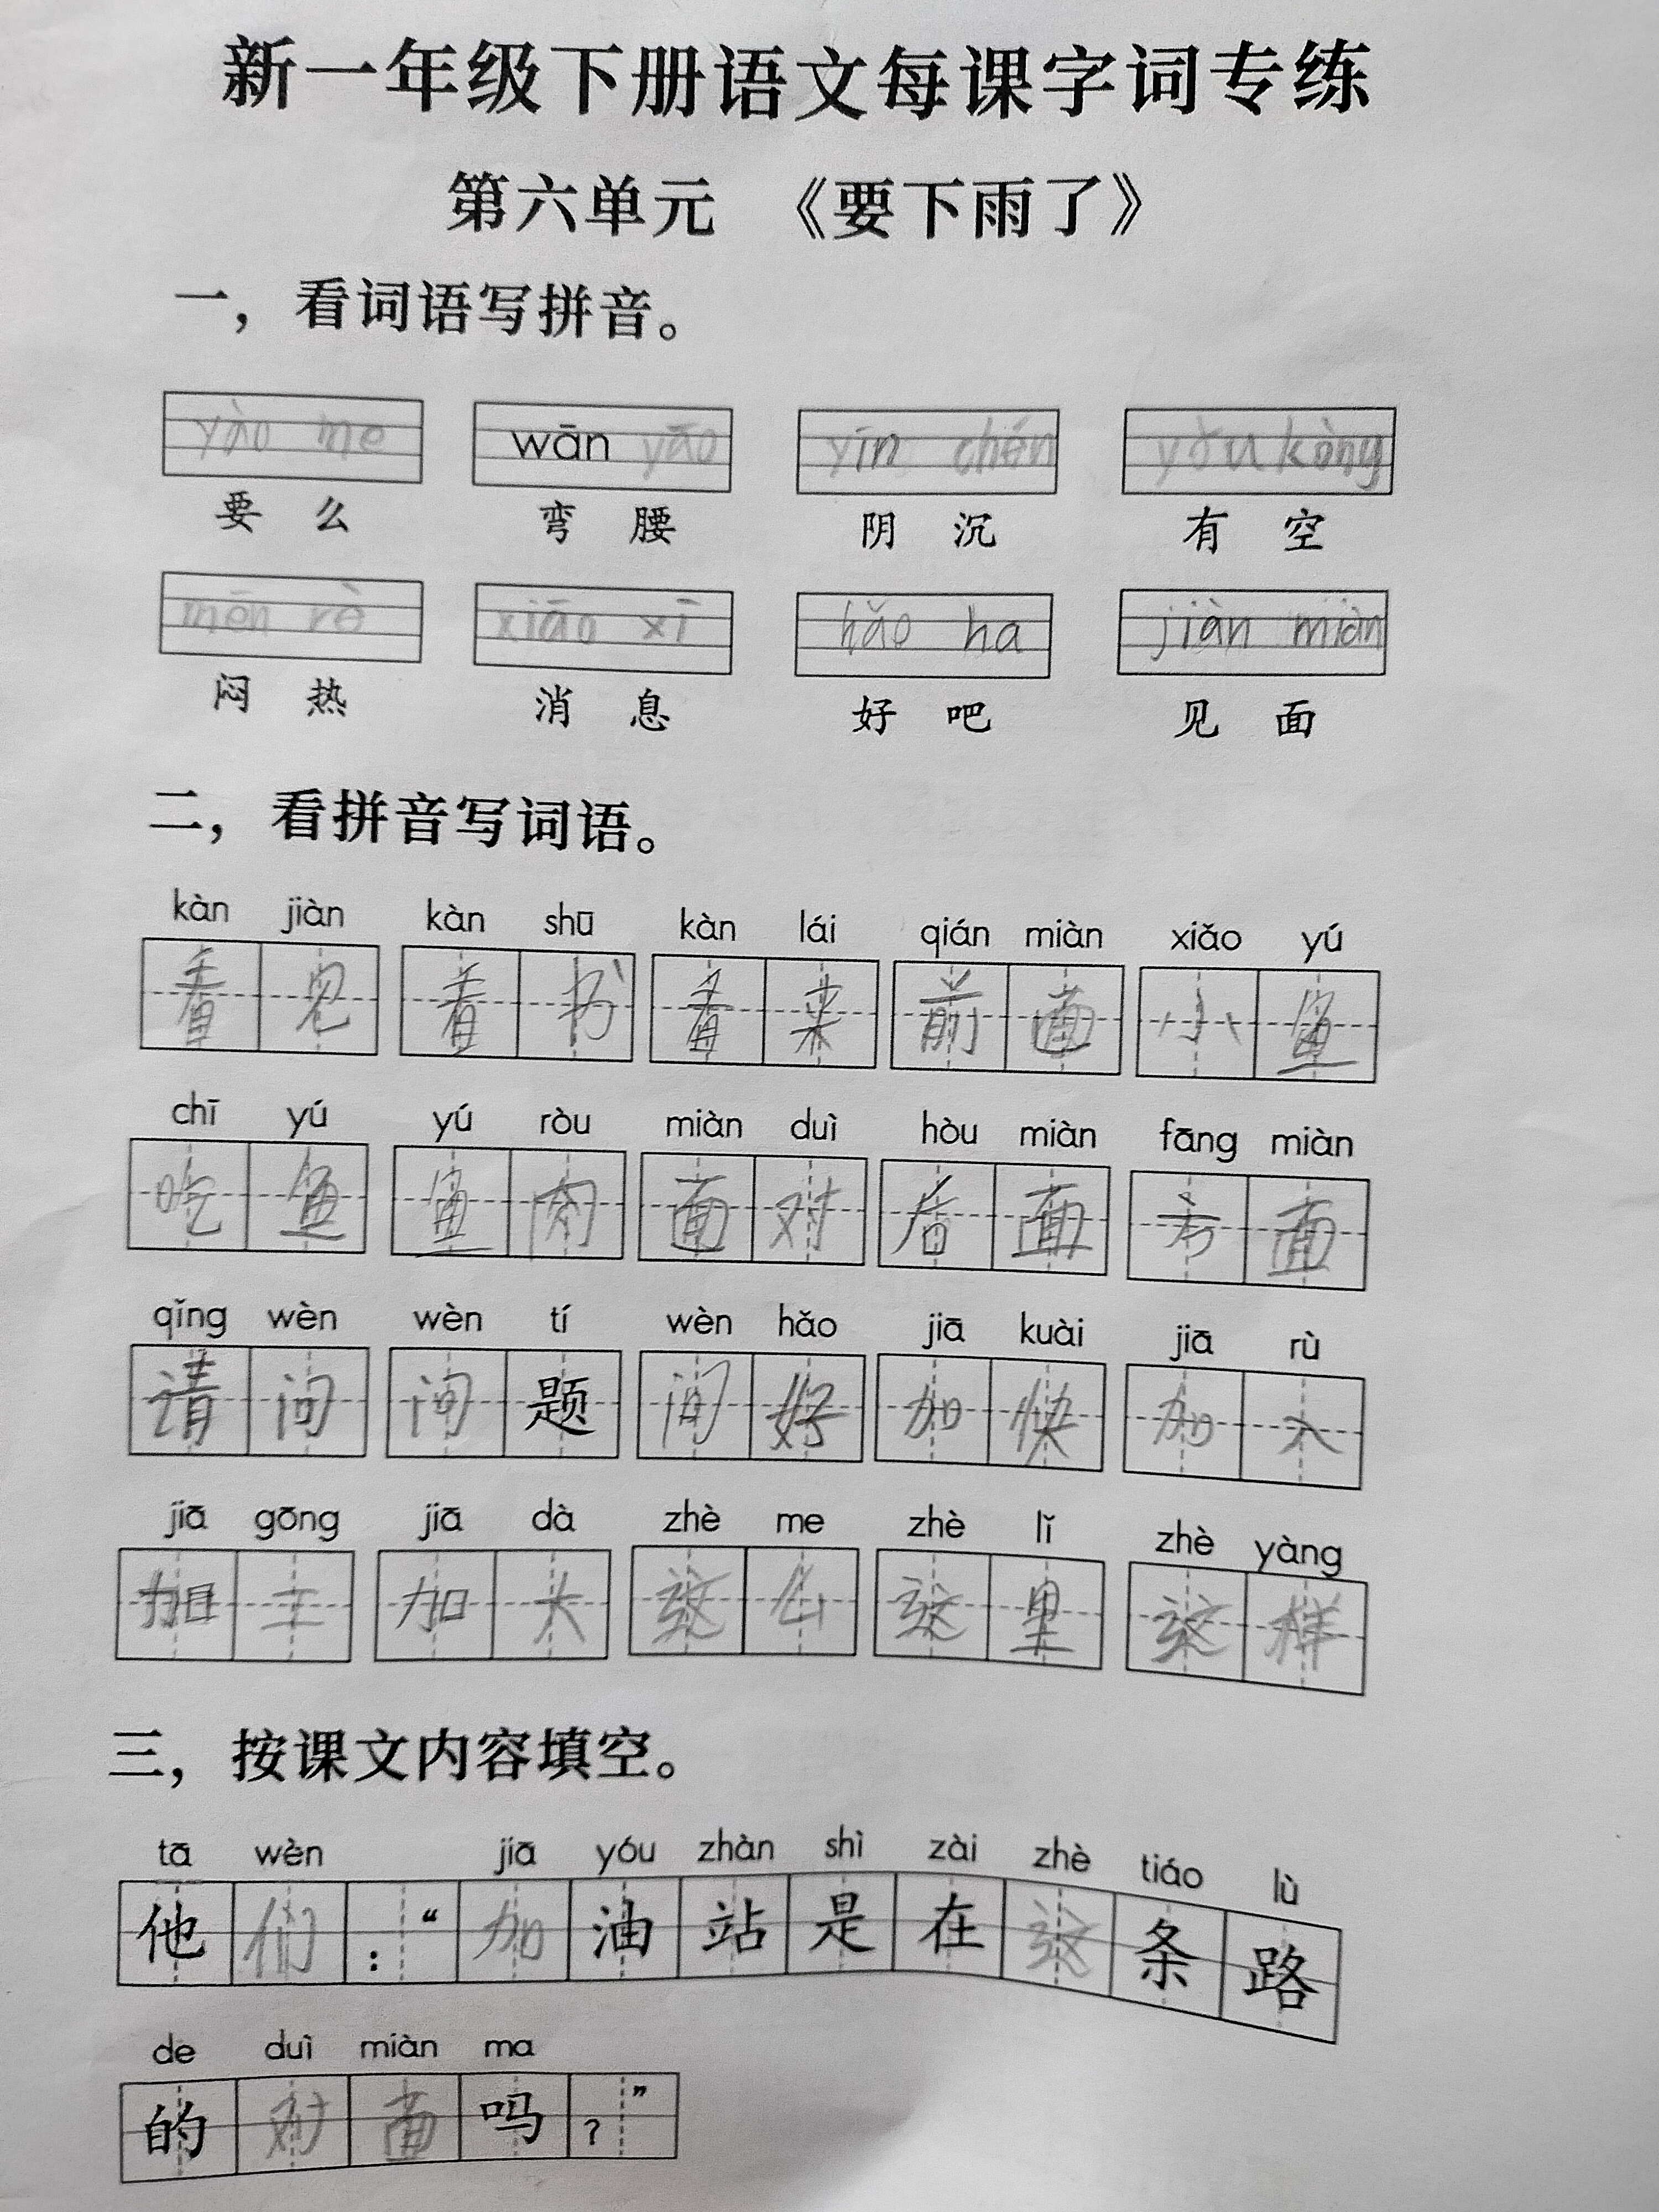 新一年级下册语文每课字词专练
第六单元 《要下雨了》
一，看词语写拼音。
yào me wān yāo yīn chén yǒu kòng
要 么 弯 腰 阴 沉 有 空
mēn rè xiāo xī hǎo ha jiàn miàn
闷 热 消 息 好 吧 见 面
二，看拼音写词语。
kàn jiàn kàn shū kàn lái qián miàn xiǎo yú
看 见 看 书 看 来 前 面 小 鱼
chī yú yú ròu miàn duì hòu miàn fāng miàn
吃 鱼 鱼 肉 面 对 后 面 方 面
qǐng wèn wèn tí wèn hǎo jiā kuài jiā rù
请 问 问 题 问 好 加 快 加 入
jiā gōng jiā dà zhè me zhè lǐ zhè yàng
加 工 加 大 这 么 这 里 这 样
三，按课文内容填空。
tā wèn jiā yóu zhàn shì zài zhè tiáo lù
他 们 ：“ 加 油 站 是 在 这 条 路
de duì miàn ma
的 对 面 吗 ？”